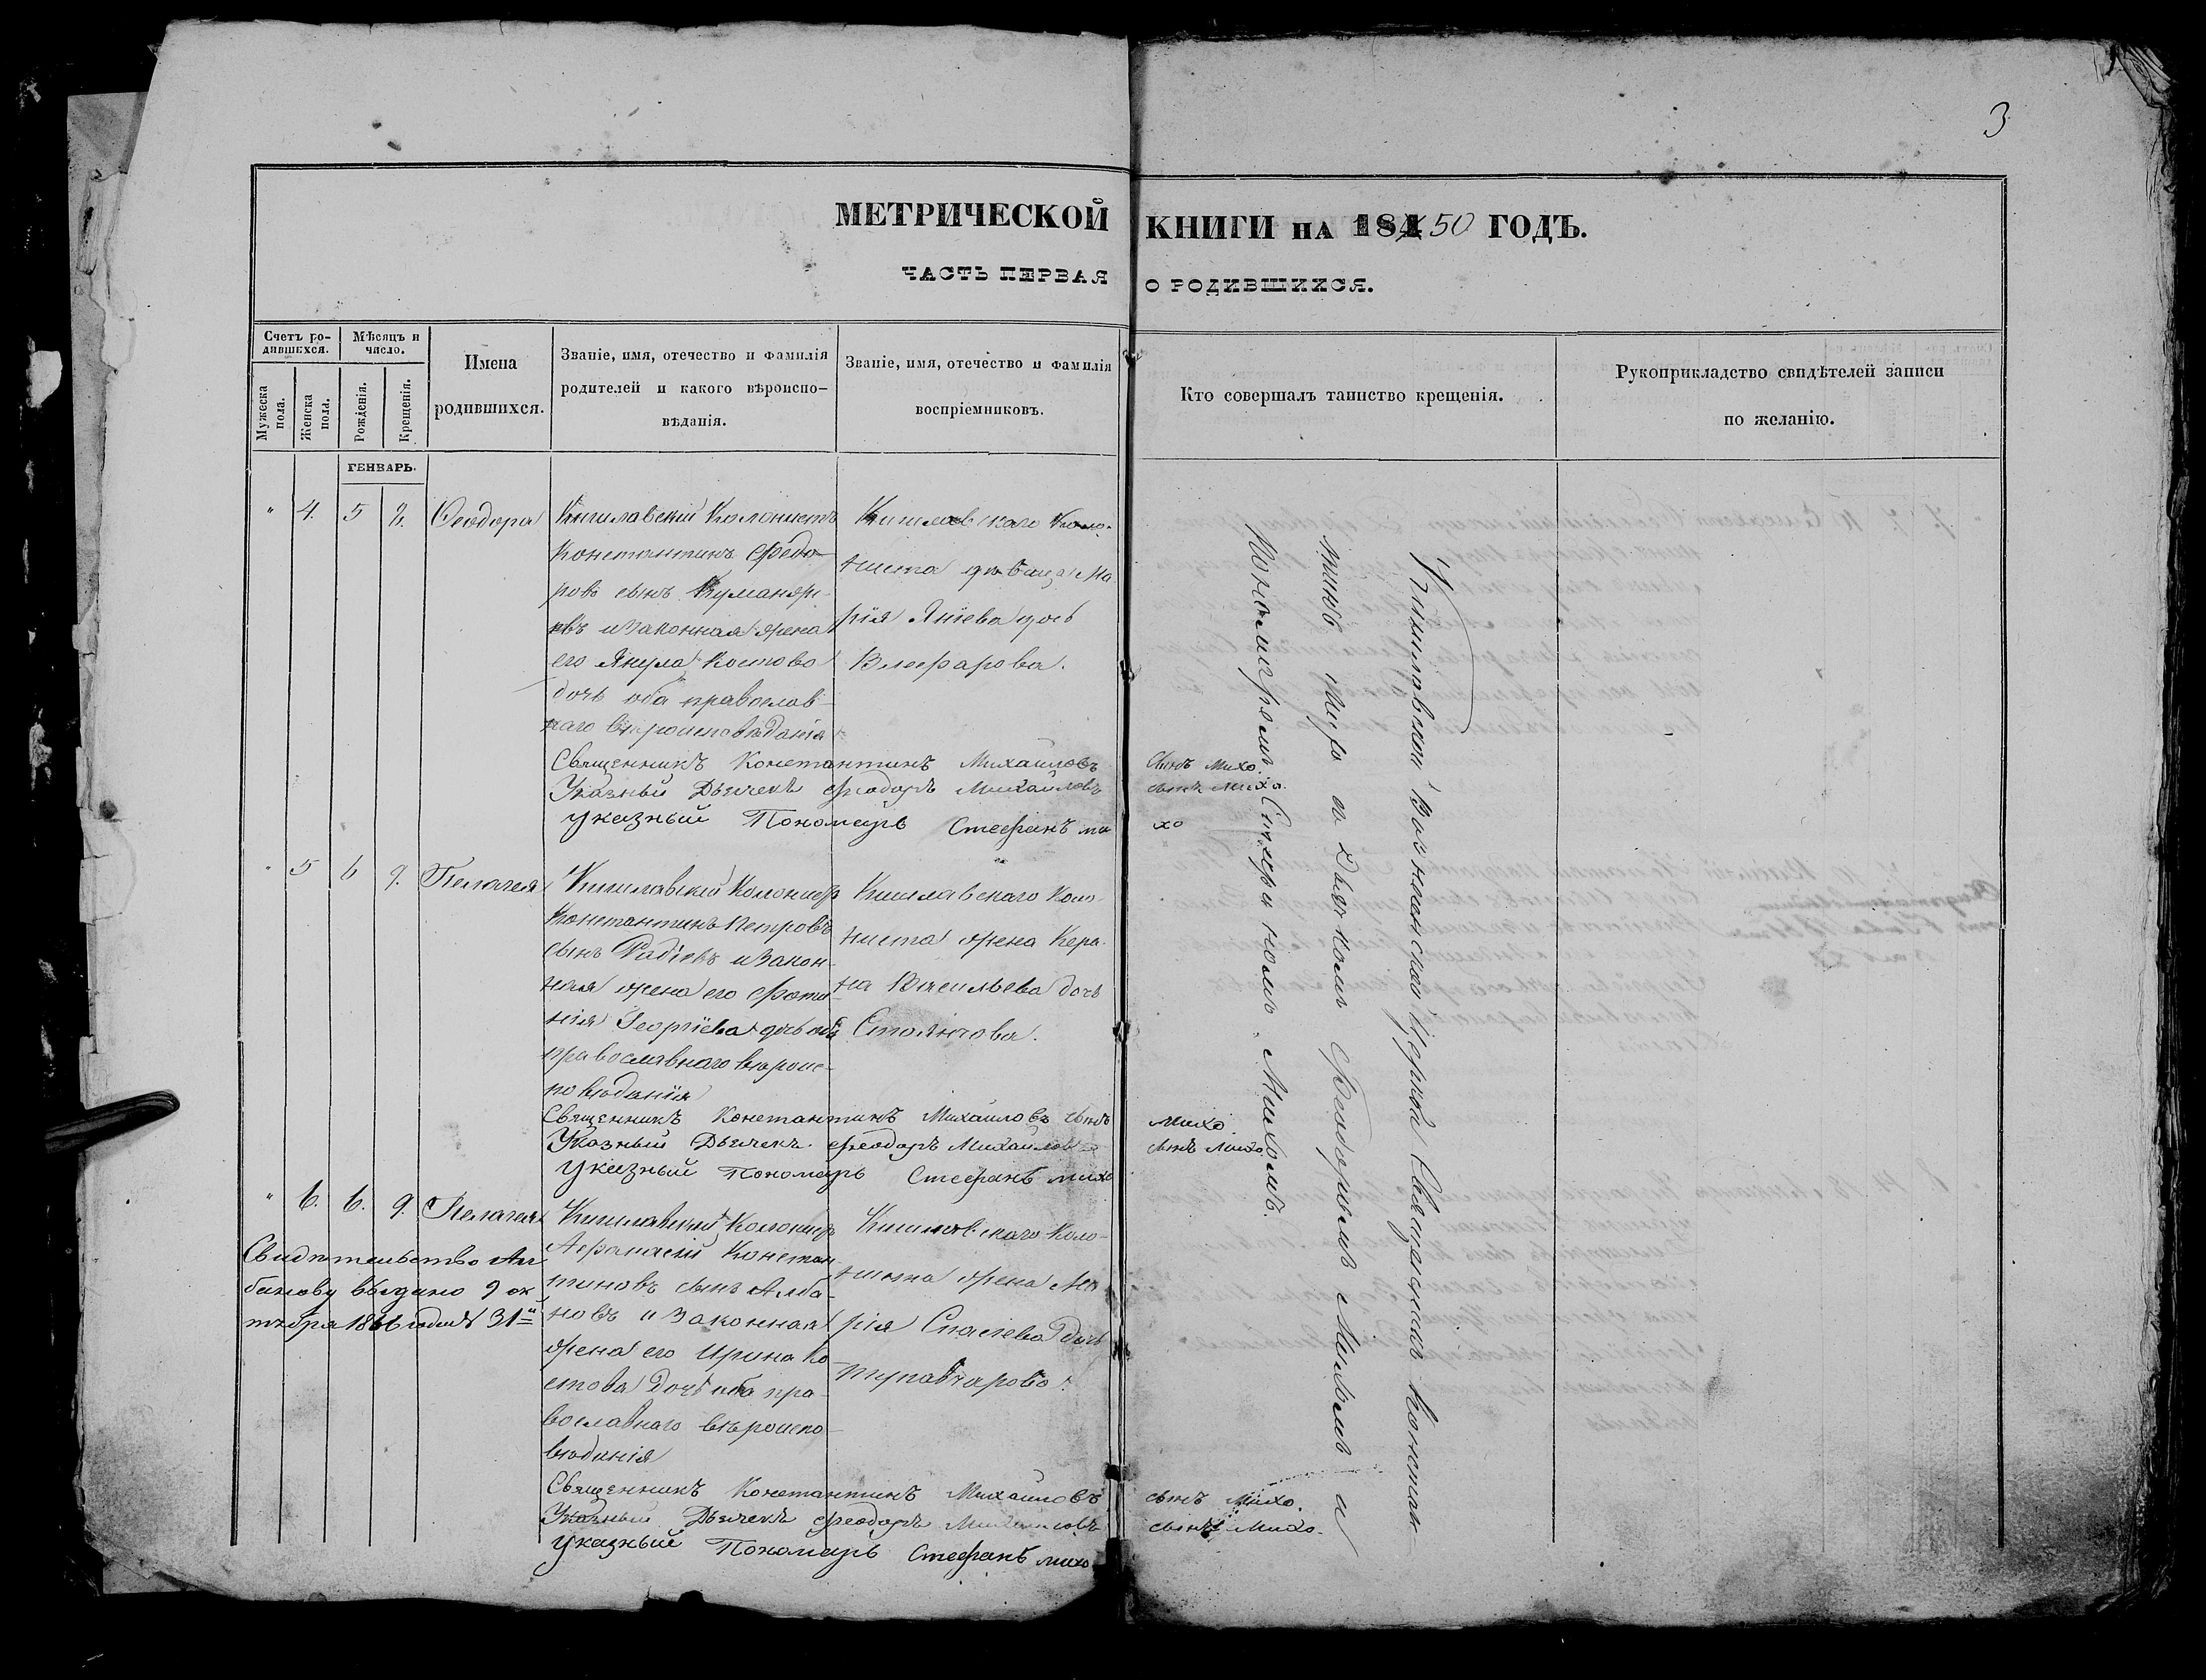 3
МЕТРИЧЕСКОЙ КНИГИ на 1850 ГОДЪ.
ЧАСТЬ ПЕРВАЯ О РОДИВШИХСЯ.
Счетъ ро-
дившихся.
Мужеска
пола.
Женска
пола.
Мѣсяцъ и
число.
Рожденія.
Крещенія.
Имена
родившихся.
Званіе, имя, отечество и фамилія
родителей и какого вѣроиспо-
вѣданія.
Званіе, имя, отечество и фамилія
воспріемниковъ.
Кто совершалъ таинство крещенія.
Рукоприкладство свидѣтелей записи
по желанію.
ГЕНВАРЬ.
" 4. 5 Ѳеодора
Кишлавскій Колонистъ
Константинъ Ѳедо-
ровъ сынъ
и законная жена
его Янула Костова
дочь оба православ-
наго вѣроисповѣданія
Кишлавскаго Коло-
ниста дѣвица Ма
рія Янїева дочь
Священникъ Константинъ Михаиловъ сынъ Михо.
Указный Дьячекъ Ѳеодоръ Михайловъ сынъ Михо.
Указный Пономарь Стефанъ михо
" 5 6 9. Пелагея
Кишлавскій Колонистъ
Константинъ Петровъ
сынъ Радїевъ и закон-
ная жена его Фоти
нія Георгїева дочь оба
православнаго вѣроис-
повѣданія
Кишлавскаго Коло
ниста жена Кера-
на Васильева дочь
Стоянова.
Священникъ Константинъ Михаиловъ сынъ Михо.
Указный Дьячекъ Ѳеодоръ Михайловъ сынъ Михо
Указный Пономарь Стефанъ михо
" 6. 6. 9. Пелагея
Свидѣтельство Ал
банову выдано 9 ок
тября 1866 года № 31
Кишлавскій Колонистъ
Афанасій Констан
тиновъ сынъ Алба-
новъ и законная
жена его Ирина Ко-
стова дочь оба пра-
вославнаго вѣроиспо-
вѣданія
Кишлавскаго Коло-
ниста жена Ма
рія Спасїева дочь
Священникъ Константинъ Михаиловъ сынъ Михо.
Указный Дьячекъ Ѳеодоръ Михайловъ сынъ Михо.
Указный Пономарь Стефанъ михо
Кишлавской Вознесенской Церкви Священникъ Констан
тинъ Михо съ Дьячкомъ Ѳеодоромъ Михомъ и
Пономаремъ Стефаномъ Михомъ.